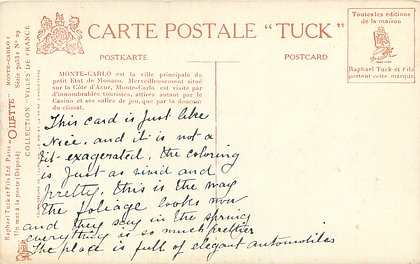 CARTE POSTALE "TUCK"
POSTKARTE
POSTCARD
Toutes les éditions
de la maison
Raphael Tuck et Fils
portent cette marque
MONTE-CARLO est la ville principale du
petit Etat de Monaco. Merveilleusement situé
sur la Côte d'Azur, Monte-Carlo est visité par
d'innombrables touristes, attirés autant par le
Casino et ses salles de jeu, que par la douceur
du climat.
This card is just like
Nice, and it is not a
bit exagerated, the coloring
is just as vivid and
pretty, this is the way
the foliage looks now
and they say in the spring
everything is so much prettier
The place is full of elegant automobiles
Raphael Tuck et Fils Ltd Paris
Un mot à la poste (Déposé)
"OILETTE"
MONTE-CARLO I
Série 705 Nº 29
COLLECTION "VILLES DE FRANCE"